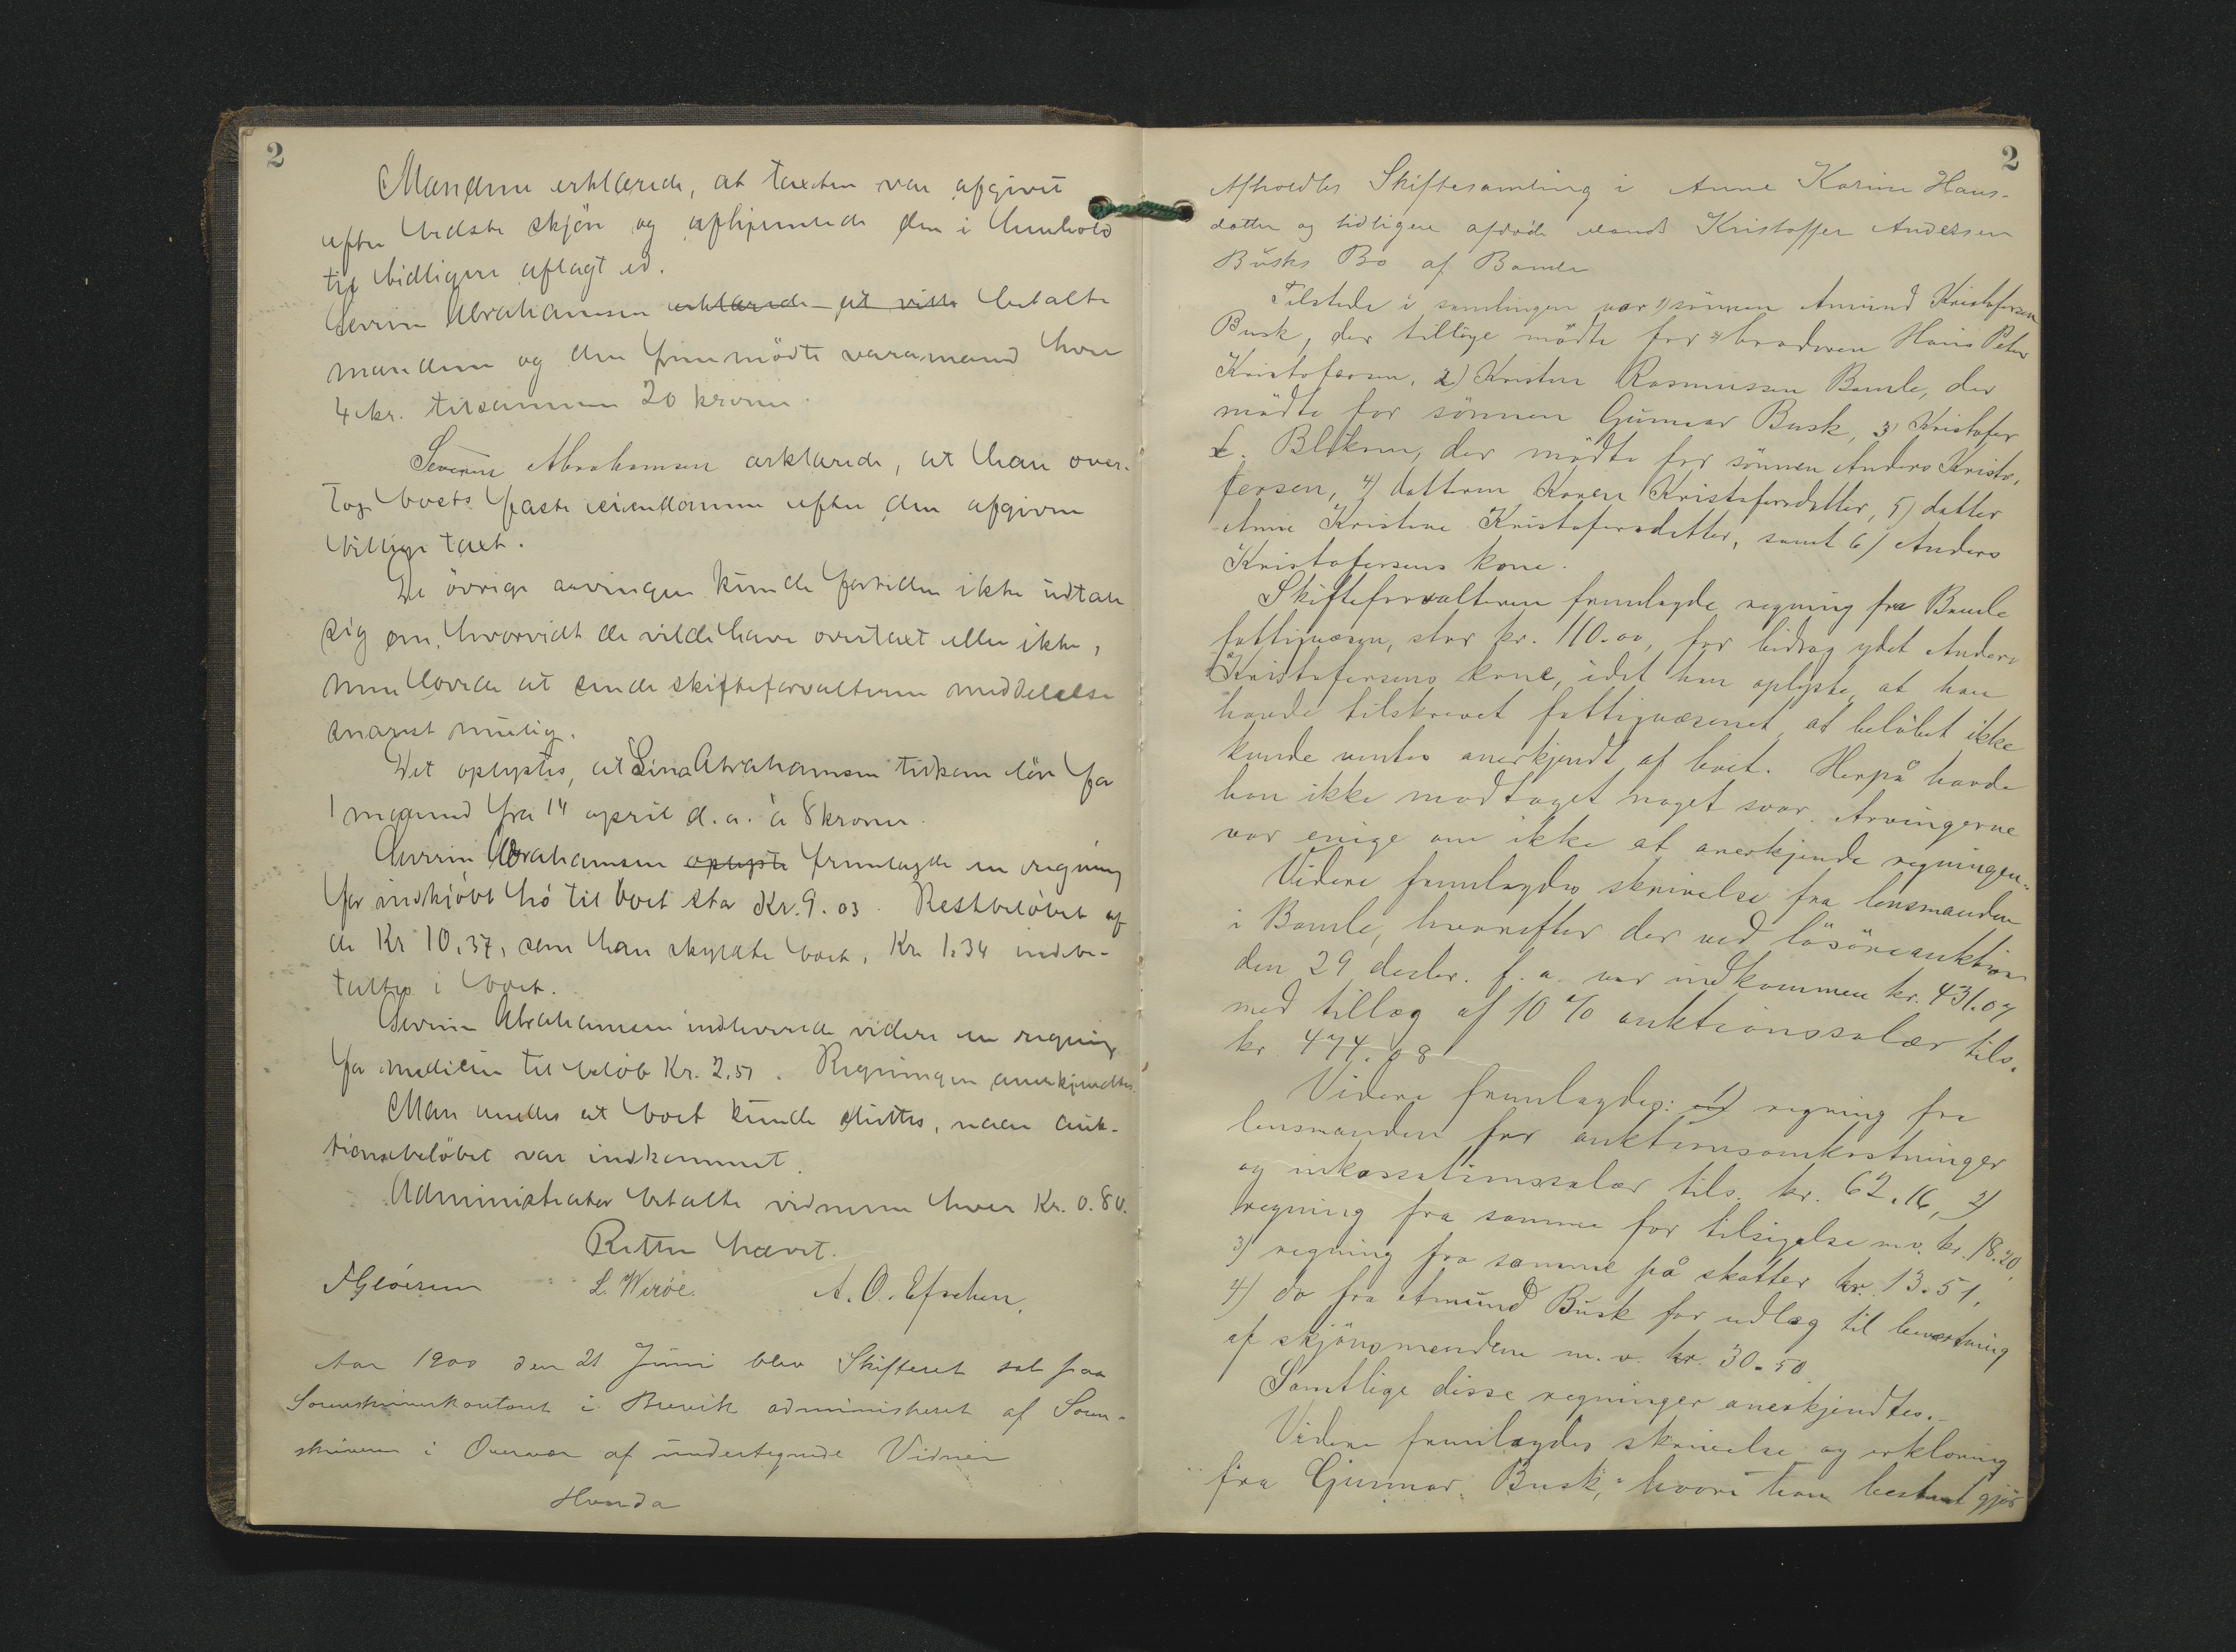 2
Mændene erklærede, at taxten var afgivet
efter bedste skjön og afhjemlede den i henhold
til tidligere aflagt ed.
Severin Abrahamsen erklærede at ville betalte
mændene og den fremmödte varamand hver
4 kr. tilsammen 20 kroner.
Severin Abrahamsen erklærede, at han over-
tog boets faste eiendomme efter den afgivne
billige taxt.
De övrige arvinger kunde fortiden ikke udtale
sig om, hvorvidt de vilde have overtaxt eller ikke,
men lovede at sende skifteforvalteren meddelelse
snarest mulig.
Det oplystes, at Lina Abrahamsen tilkom lön for
1 maaned fra 14 april d. a. à 8 kroner.
Severin Abrahamsen oplyste fremlagde en regning
for indkjöbt hö til boet stor Kr. 9.03. Restbelöbet af
de Kr 10,37, som han skyldte boet, Kr. 1.34 indbe-
taltes i boet.
Severin Abrahamsen indleverede videre en regning
for medicin til belöb Kr. 2,51. Regningen anerkjendtes.
Man enedes at boet kunde sluttes, naar auk-
tionsbelöbet var indkommet.
Administrator betalte vidnerne hver Kr. 0.80.
Retten hævet.
L. Weröe. A. O.
Aar 1900 den 21 Juni blev Skifteret sat paa
Sorenskriverkontoret i Brevik administreret af Soren-
skriveren i Overvær af undertegnede Vidner
Hvorda
2
Afholdtes Skiftesamling i Anne Karine Hans-
datter og tidligere afdøde Mands Kristoffer Andersen
Busks Bo af Bamle
Tilstede i samlingen var 1) sönnen Amund Kristofersen
Busk, der tillige mödte for broderen Hans Peter
Kristofersen, 2) Kristen Rasmussen Bamle, der
mödte for sönnen Gunnar Busk, 3) Kristofer
E. Blekom, der mödte for sönnen Anders Kristo-
fersen, 4) datteren Karen Kristofersdatter, 5) datter
Anne Kristine Kristofersdatter, samt 6) Anders
Kristofersens kone.
Skifteforvalteren fremlagde regning fra Bamle
fattigvæsen, stor kr. 110.00, for bidrag ydet Anders
Kristofersens kone, idet han oplyste, at han
havde tilskrevet fattigvæsenet at belöbet ikke
kunde ventes anerkjendt af boet. Herpå havde
han ikke modtaget noget svar. Arvingerne
var enige om ikke at anerkjende regningen.
Videre fremlagdes skrivelse fra lensmanden
i Bamle, hvorefter der ved lösöreauktion
den 29 decbr. f. a. var indkommen kr. 431.07
med tillæg af 10 % auktionssalær tils.
kr. 474.08
Videre fremlagdes: 1) regning fra
lensmanden for auktionsomkostninger
og inkassationssalær tils. kr. 62.16, 2)
regning fra samme for tilsigelse m.v. kr. 18.20,
3) regning fra samme på skatter kr. 13.51,
4) do fra Amund Busk for udlæg til bevertning
af skjönsmændene m. v. kr. 30.50.
Samtlige disse regninger anerkjendtes.
Videre fremlagdes skrivelse og erklæring
fra Gunnar Busk, hvori han bestemt gjör